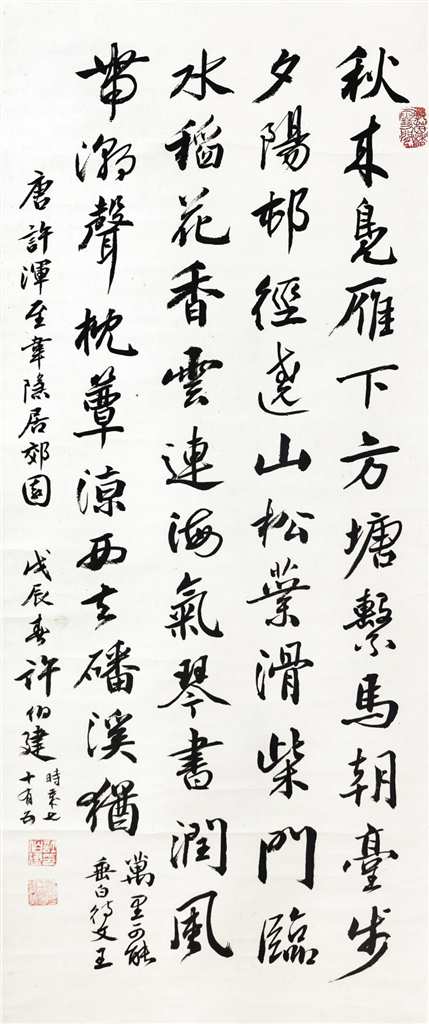 秋来鳧雁下方塘繫馬朝臺步
夕陽邨徑遶山松葉滑柴門臨
水稻花香雲連海氣琴書潤風
帶潮聲枕簟涼西去磻溪猶
萬里可能
垂白待文王
唐許渾至韋隱居郊園 戊辰春許伯建
時秊七
十有五